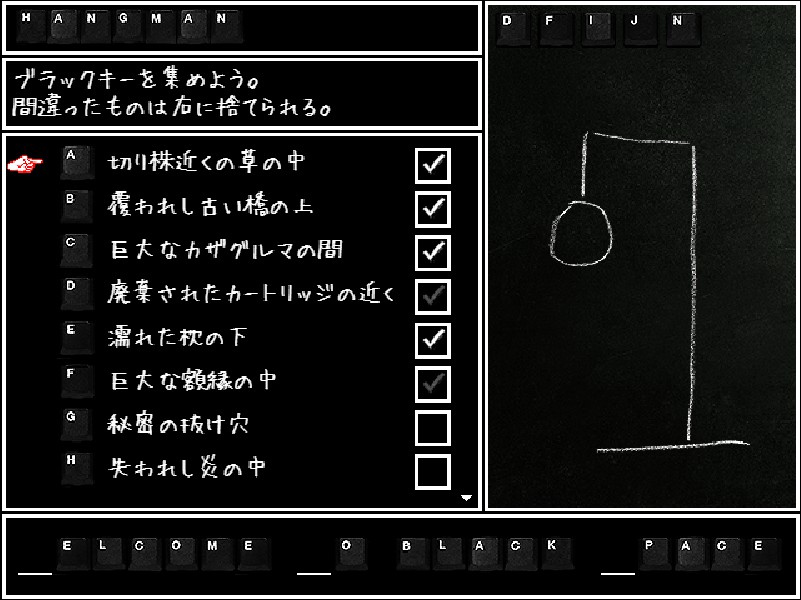 HANGMAN
DFIJN
ブラックキーを集めよう。
間違ったものは右に捨てられる。
A 切り株近くの草の中
B 覆われし古い橋の上
C 巨大なカザグルマの間
D 廃棄されたカートリッジの近く
E 濡れた枕の下
F 巨大な額縁の中
G 秘密の抜け穴
H 失われし炎の中
_ELCOME _O BLACK _PACE